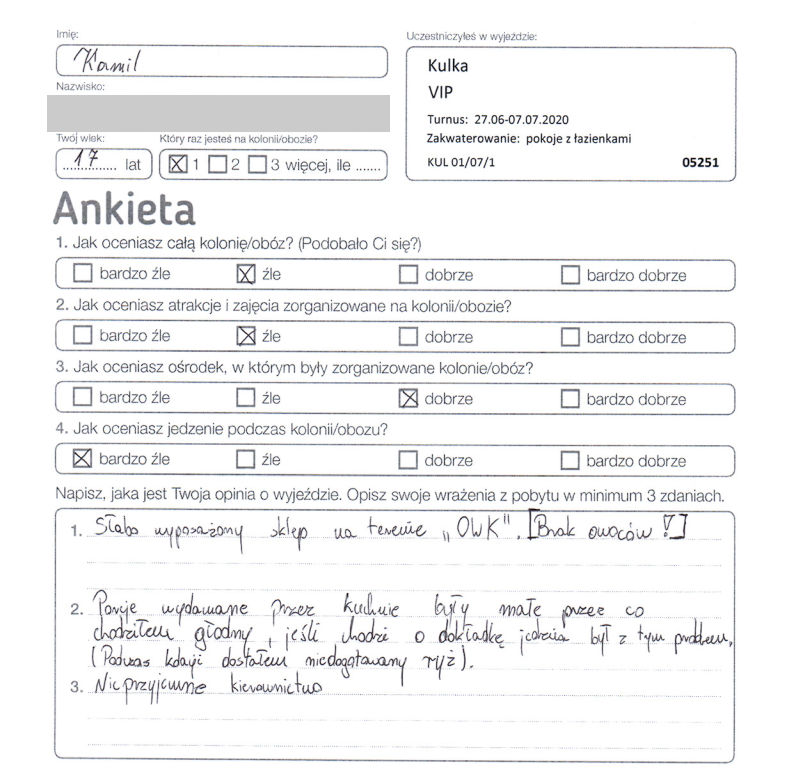 Imię:
Kamil
Nazwisko:
Twój wiek:
17 lat
Który raz jesteś na kolonii/obozie?
1 2 3 więcej, ile .......
Uczestniczyłeś w wyjeździe:
Kulka
VIP
Turnus: 27.06-07.07.2020
Zakwaterowanie: pokoje z łazienkami
KUL 01/07/1 05251
Ankieta
1. Jak oceniasz całą kolonię/obóz? (Podobało Ci się?)
bardzo źle źle dobrze bardzo dobrze
2. Jak oceniasz atrakcje i zajęcia zorganizowane na kolonii/obozie?
bardzo źle źle dobrze bardzo dobrze
3. Jak oceniasz ośrodek, w którym były zorganizowane kolonie/obóz?
bardzo źle źle dobrze bardzo dobrze
4. Jak oceniasz jedzenie podczas kolonii/obozu?
bardzo źle źle dobrze bardzo dobrze
Napisz, jaka jest Twoja opinia o wyjeździe. Opisz swoje wrażenia z pobytu w minimum 3 zdaniach.
1. Słabo wyposażony sklep na terenie „OWK". [Brak owoców !]
2. Porcje wydawane przez kuchnie były małe przez co
chodziłem głodny, jeśli chodzi o dokładkę jedzenia był z tym problem,
(Podczas kolacji dostałem niedogotowany ryż).
3. Nieprzyjemne kierownictwo